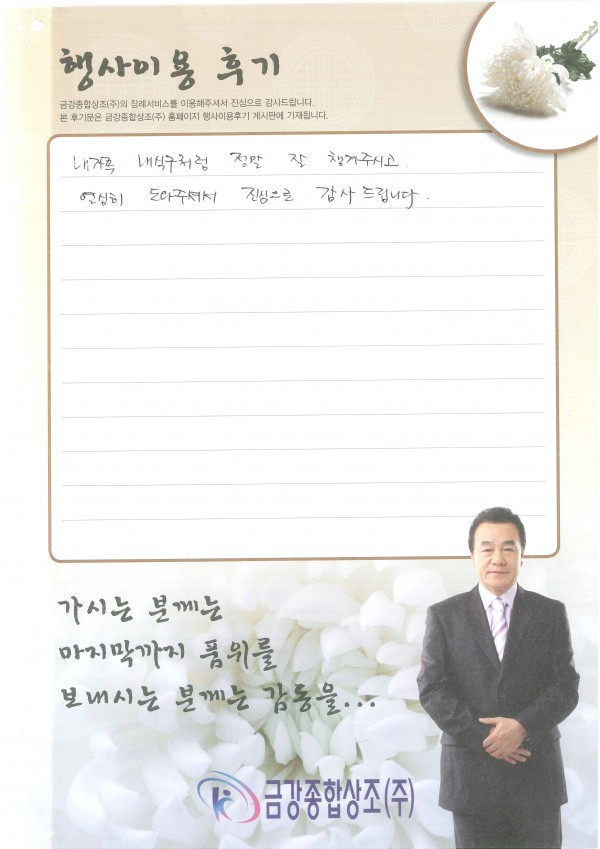 행사이용 후기
금강종합상조(주)의 장례서비스를 이용해주셔서 진심으로 감사드립니다.
본 후기문은 금강종합상조(주) 홈페이지 행사이용후기 게시판에 기재됩니다.
내가족 내식구처럼 정말 잘 챙겨주시고
열심히 도와주셔서 진심으로 감사 드립니다.
가시는 분께는
마지막까지 품위를
보내시는 분께는 감동을...
금강종합상조(주)